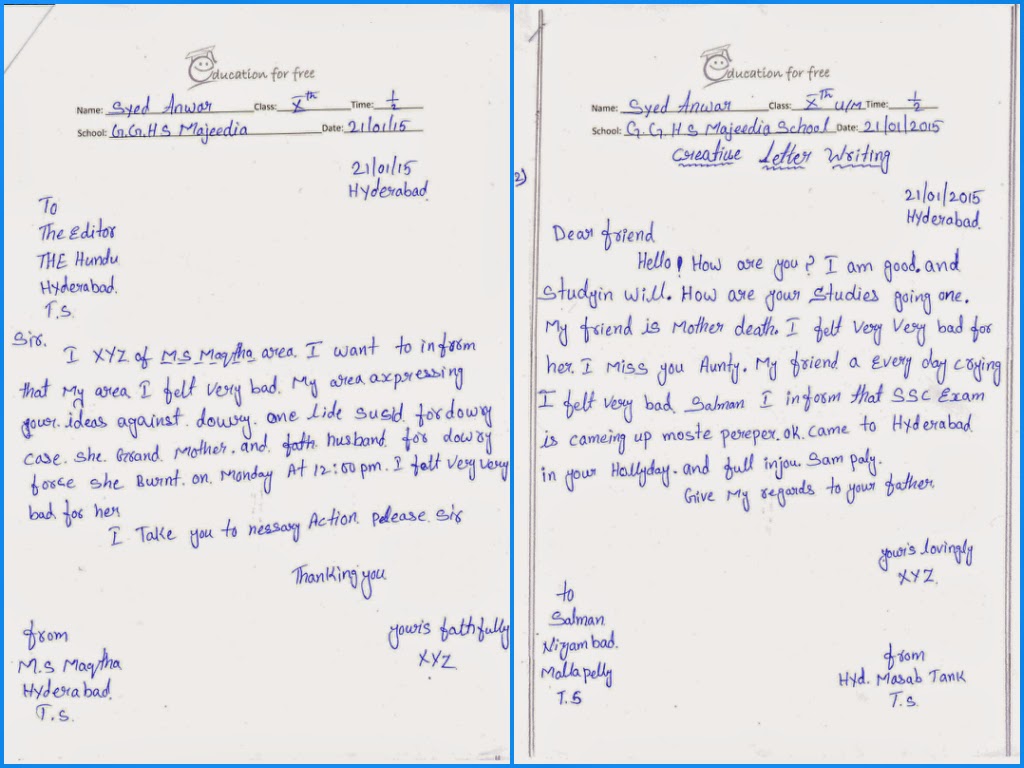 Education for free
Name: Syed Anwar Class: Xth Time: 1/2
School: G.G.H S Majeedia Date: 21/01/15
21/01/15
Hyderabad.
To
The Editor
THE Hundu
Hyderabad.
T.S.
Sir.
I XYZ of M.S Maqtha area. I want to infrom
that My area I felt very bad. My area axpressing
your ideas against dowry. one lide Susid for dowry
case. She. Grand Mother. and. fath husband for dowry
force She Burnt. on. Monday At 12:00 pm. I felt very very
bad for her
I Take you to nessary Action. please Sir
Thanking you
from
M.S Maqtha
Hyderabad.
T.S.
youris faithfully
XYZ
Education for free
Name: Syed Anwar Class: Xth U/M Time: 1/2
School: G. G H S Majeedia School Date: 21/01/2015
Creative Letter Writing
2)
21/01/2015
Hyderabad.
Dear friend
Hello! How are you? I am good. and
Studyin will. How are your Studies going one.
My friend is Mother death. I felt very very bad for
her. I Miss you Aunty. My friend a Every day crying
I felt very bad. Salman I inform that SSC Exam
is cameing up moste pereper. ok. came to Hyderabad
in your Hollyday. and full injou. Sam paly.
Give My regards to your father.
youris lovingly
XYZ.
to
Salman
Nizam bad.
Mallapelly
T.S
from
Hyd. Masab Tank
T.S.